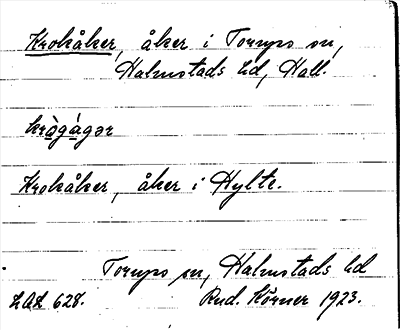 Krokåker, åker i Torups sn,
Halmstads hd, Hall.
krògágər
Krokåker, åker i Hylte.
Torups sn, Halmstads hd
LAL 628. Rud. Körner 1923.